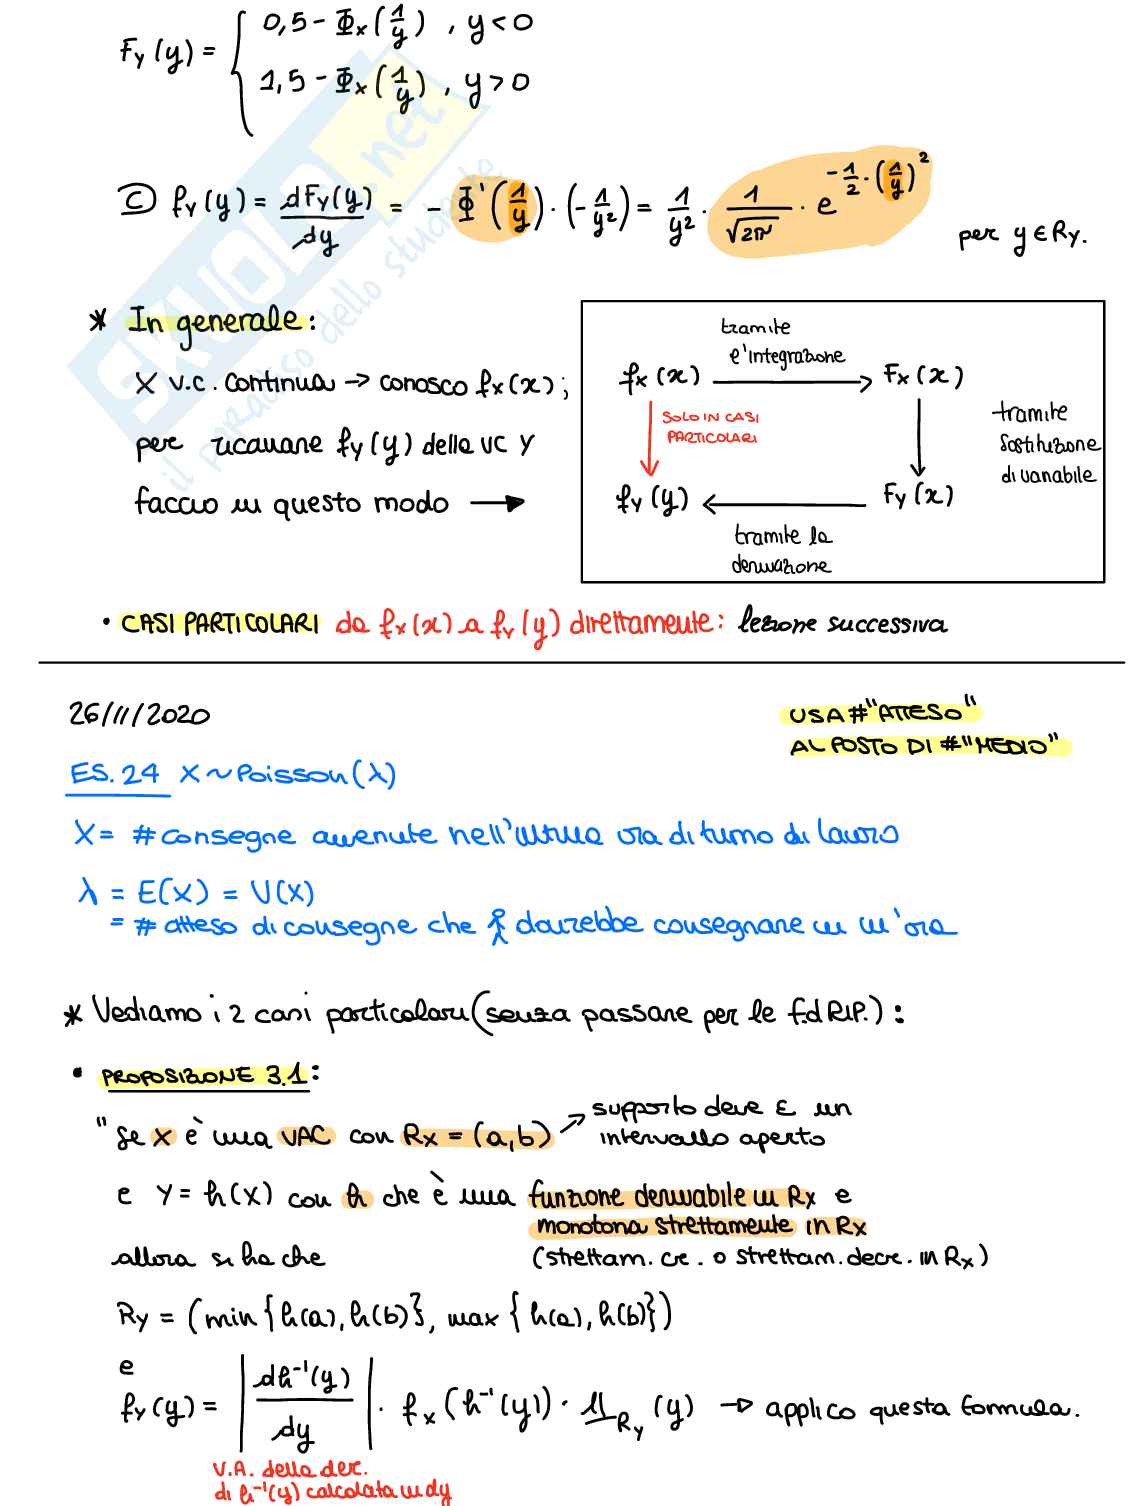 F_Y(y) = { 0,5 - Φ_X(1/y) , y<0
1,5 - Φ_X(1/y) , y>0
C) f_Y(y) = dF_Y(y)/dy = - Φ'(1/y) · (-1/y²) = 1/y² · 1/√2π · e^(-1/2 · (1/y)²) per y ∈ R_Y.
* In generale:
X v.c. continua → conosco f_X(x);
per ricavare f_Y(y) della VC Y
faccio in questo modo →
tramite
l'integrazione
f_X(x) → F_X(x)
SOLO IN CASI
PARTICOLARI
tramite
sostituzione
di variabile
f_Y(y) ← F_Y(x)
tramite la
derivazione
• CASI PARTICOLARI da f_X(x) a f_Y(y) direttamente: lezione successiva
26/11/2020
USA #"ATTESO"
AL POSTO DI #"MEDIO"
ES. 24 X ~ Poisson(λ)
X = # consegne avvenute nell'ultima ora di turno di lavoro
λ = E(X) = V(X)
= # atteso di consegne che dovrebbe consegnare in un'ora
* Vediamo i 2 casi particolari (senza passare per le f.d RIP.):
• PROPOSIZIONE 3.1:
"Se X è una VAC con R_X = (a,b) ↗ supporto deve E un
intervallo aperto
e Y = h(X) con h che è una funzione derivabile in R_X e
monotona strettamente in R_X
allora si ha che (strettam. cre. o strettam. decr. in R_X)
R_Y = (min{h(a), h(b)}, max{h(a), h(b)})
e
f_Y(y) = |dh⁻¹(y)/dy| · f_X(h⁻¹(y)) · 𝟙_R_Y(y) → applico questa formula.
V.A. della der.
di h⁻¹(y) calcolata in dy
SKUOLA.net
il paradiso dello studente